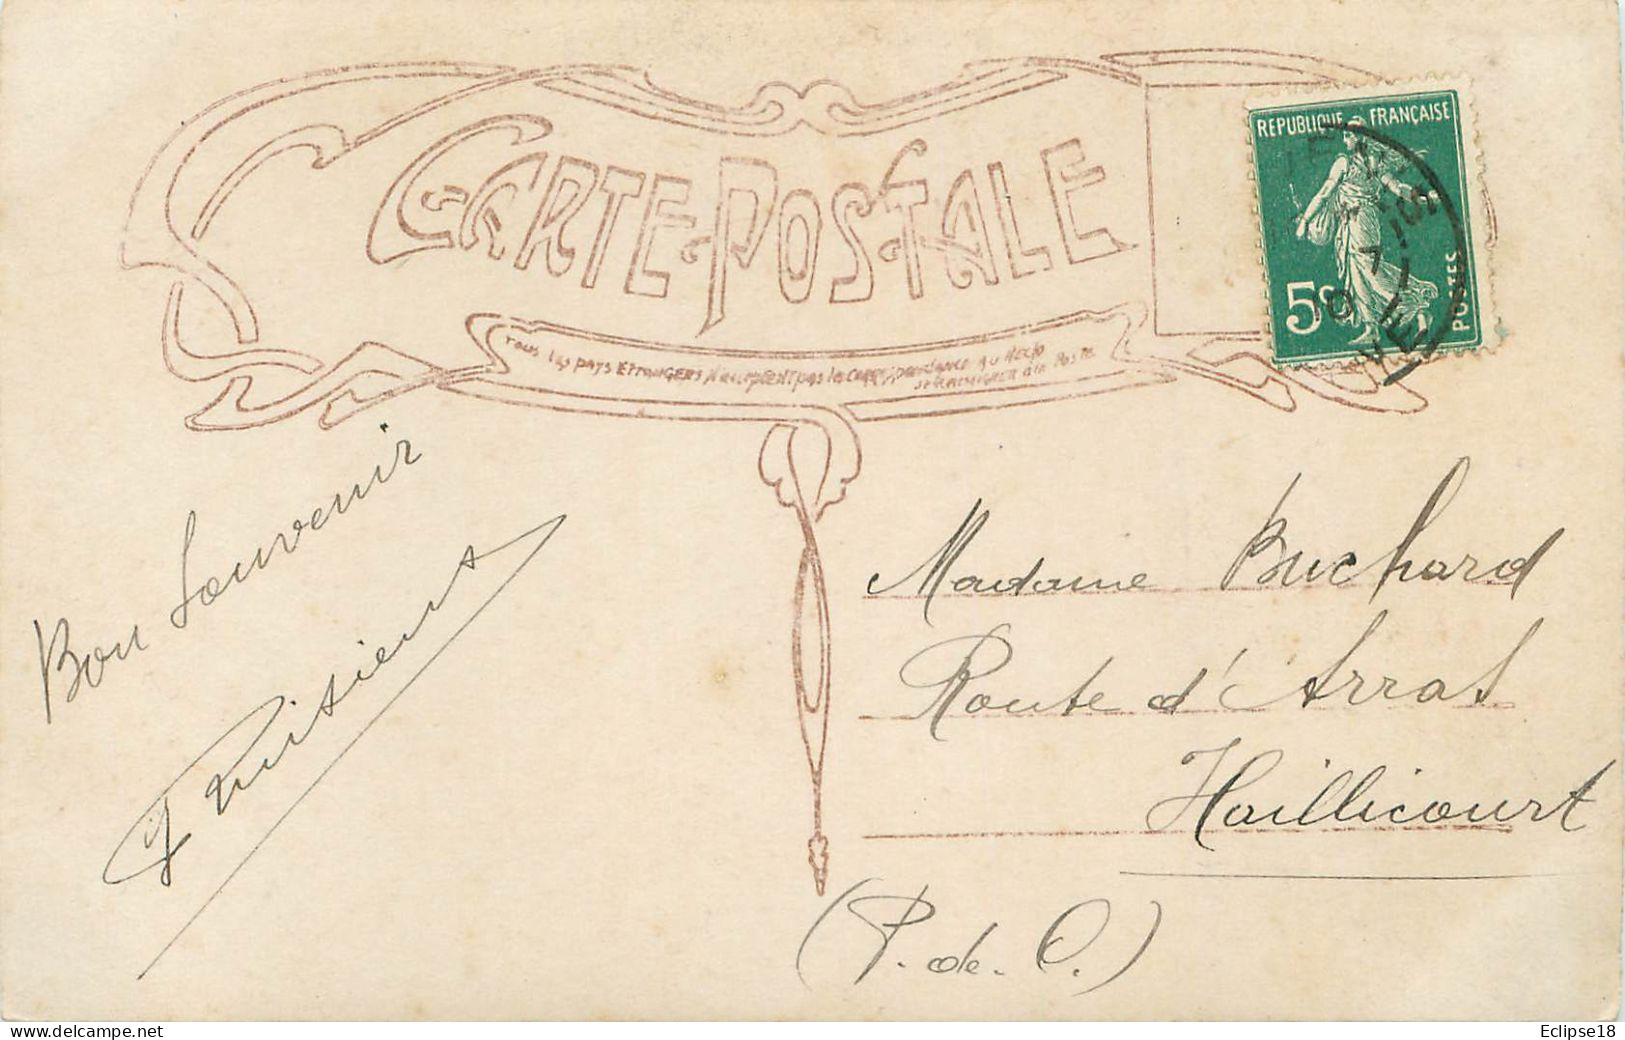 CARTE-POSTALE
TOUS LES PAYS ETRANGERS N'acceptent pas la Correspondance au Recto
se renseigner à la POSTE
REPUBLIQUE FRANÇAISE
5c
POSTES
Bon Souvenir
Madame Buchard
Route d'Arras
Haillicourt
(P. de C.)
www.delcampe.net
Eclipse18